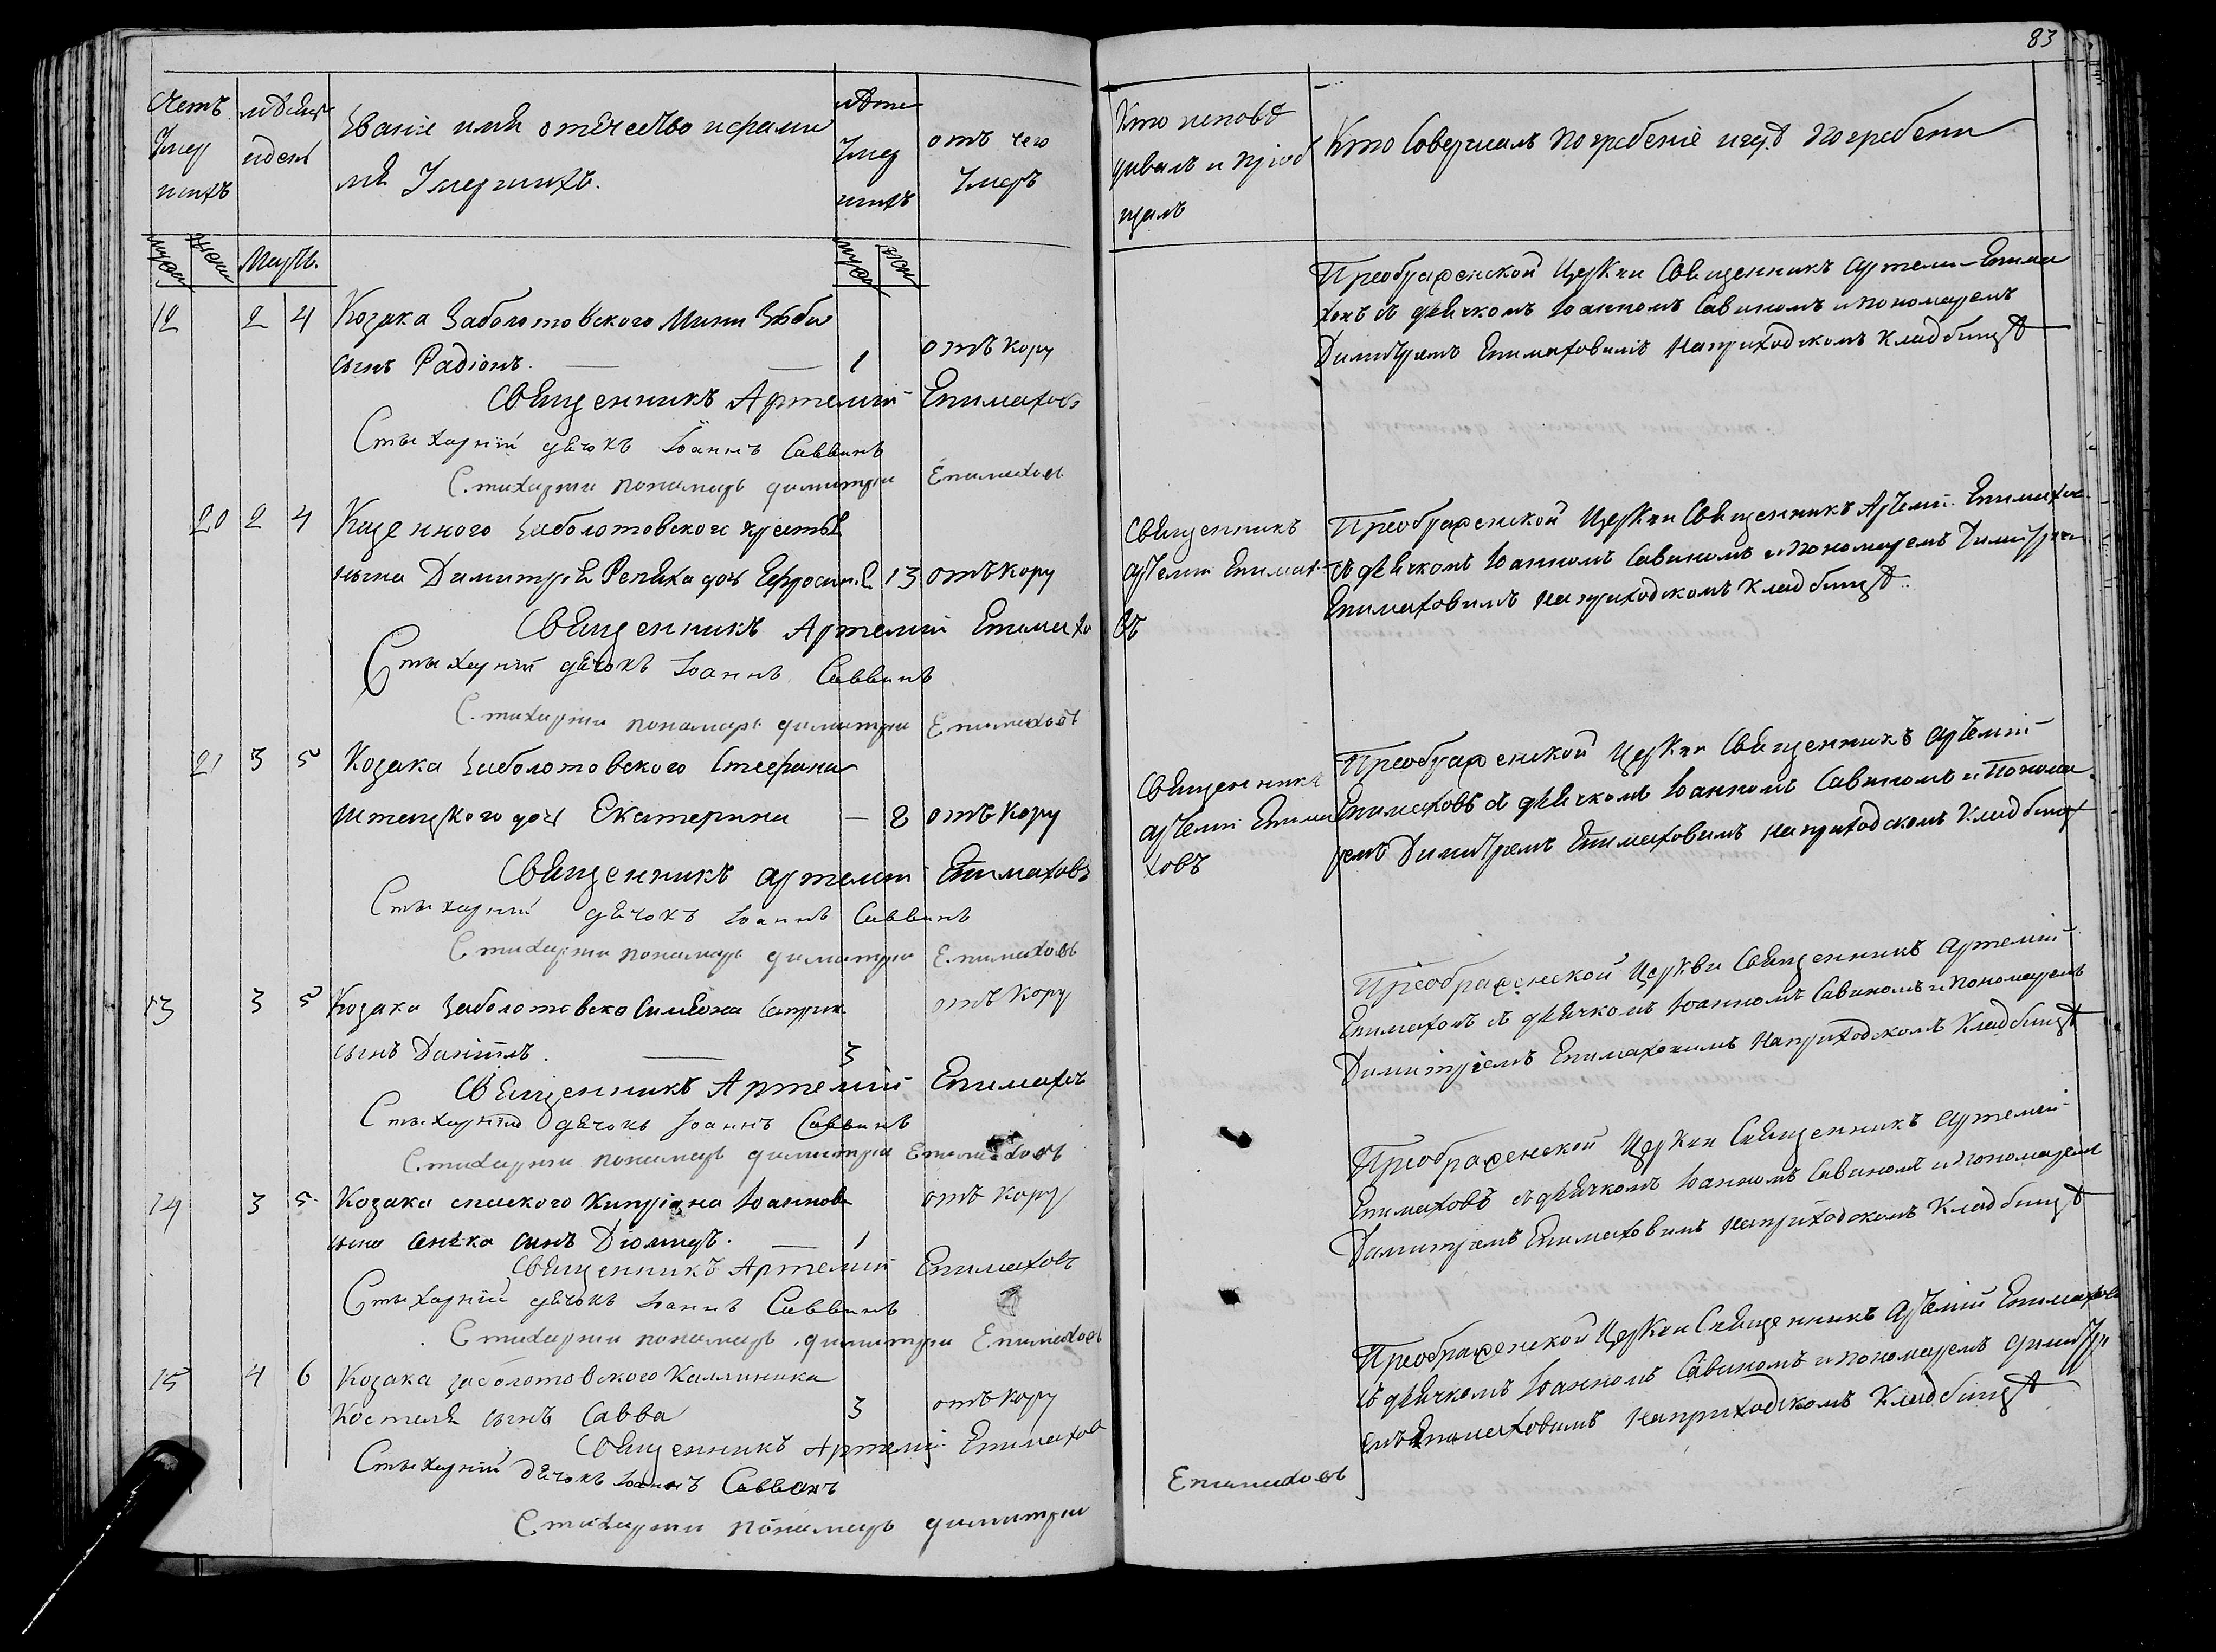 83
Счетъ Умершихъ
мѣсяцъ и день
Званіе имя отечество и фамилія Умершихъ.
лѣта Умершихъ
отъ чего Умеръ
Кто исповѣдывалъ и пріобщалъ
Кто Совершалъ погребеніе и гдѣ погребены
муж жен Мартъ. муж жен
12 2 4 Козака Заболотовского Мины
сынъ Радіонъ. 1 отъ кору
Преображенской Церкви Священникъ Артемій Епима
ховъ съ дьячкомъ Іоанномъ Савиномъ и пономаремъ
Димитріемъ Епимаховимъ На приходскомъ кладбищѣ
Священникъ Артемій Епимаховъ
Стыхарній дьчокъ Іоаннъ Саввинъ
Стихарни понамарь димитри Епимаховъ
20 2 4 Казенного Заболотовского крестья
нина Димитрія дочь Ефросин. 13 отъ кору
Священникъ
Артемій Епимах
въ
Преображенской Церкви Священникъ Артемій Епимахов
съ дьячкомъ Іоанномъ Савиномъ и пономаремъ Димитріем
Епимаховимъ На приходскомъ кладбищѣ.
Священникъ Артемій Епимахо
Стыхарній дьчокъ Іоаннъ Саввинъ
Стихарни понамарь димитри Епимаховъ
21 3 5 Козака Заболотовского Стефана
дочь Екатерина — 8 отъ кору
Священникъ
Артемій Епима
ховъ
Преображенской Церкви Священникъ Артемій
Епимаховъ съ дьячкомъ Іоанномъ Савиномъ и Понома
ремъ Димитріемъ Епимаховимъ на приходскомъ кладбищѣ
Священникъ Артемій Епимаховъ
Стыхарній дьчокъ Іоаннъ Саввинъ
Стихарни понамарь димитри Епимаховъ
13 3 5 Козака Заболотовско Симеона
сынъ Даніилъ. 3 отъ кору
Преображенской Церкви Священникъ Артемій
Епимаховъ съ дьячкомъ Іоанномъ Савиномъ и Пономаремъ
Димитріемъ Епимаховимъ На приходскомъ кладбищѣ
Священникъ Артемій Епимахвъ
Стыхарній дьчокъ Іоаннъ Саввинъ
Стихарни понамарь димитри Епимаховъ
14 3 5 Козака Кипріяна Іоаннова
сына сынъ Діомидъ. 1 отъ кору
Преображенской Церкви Священникъ Артемій
Епимаховъ съ дьячкомъ Іоанномъ Савиномъ и Пономаремъ
Димитріемъ Епимаховимъ На приходскомъ Кладбищѣ
Священникъ Артемій Епимаховъ
Стыхарній дьчокъ Іоаннъ Саввинъ
Стихарни понамарь димитри Епимаховъ
15 4 6 Козака заболотовского Каллиника
Костеля сынъ Савва 3 отъ кору
Преображенской Церкви Священникъ Артемій Епимахов
съ дьячкомъ Іоанномъ Савиномъ и пономаремъ димитрі
емъ Епимаховимъ На приходскомъ Кладбищѣ
Священникъ Артемій Епимахов
Стыхарній дьчокъ Іоаннъ Саввинъ
Стихарни понамарь димитри Епимаховъ